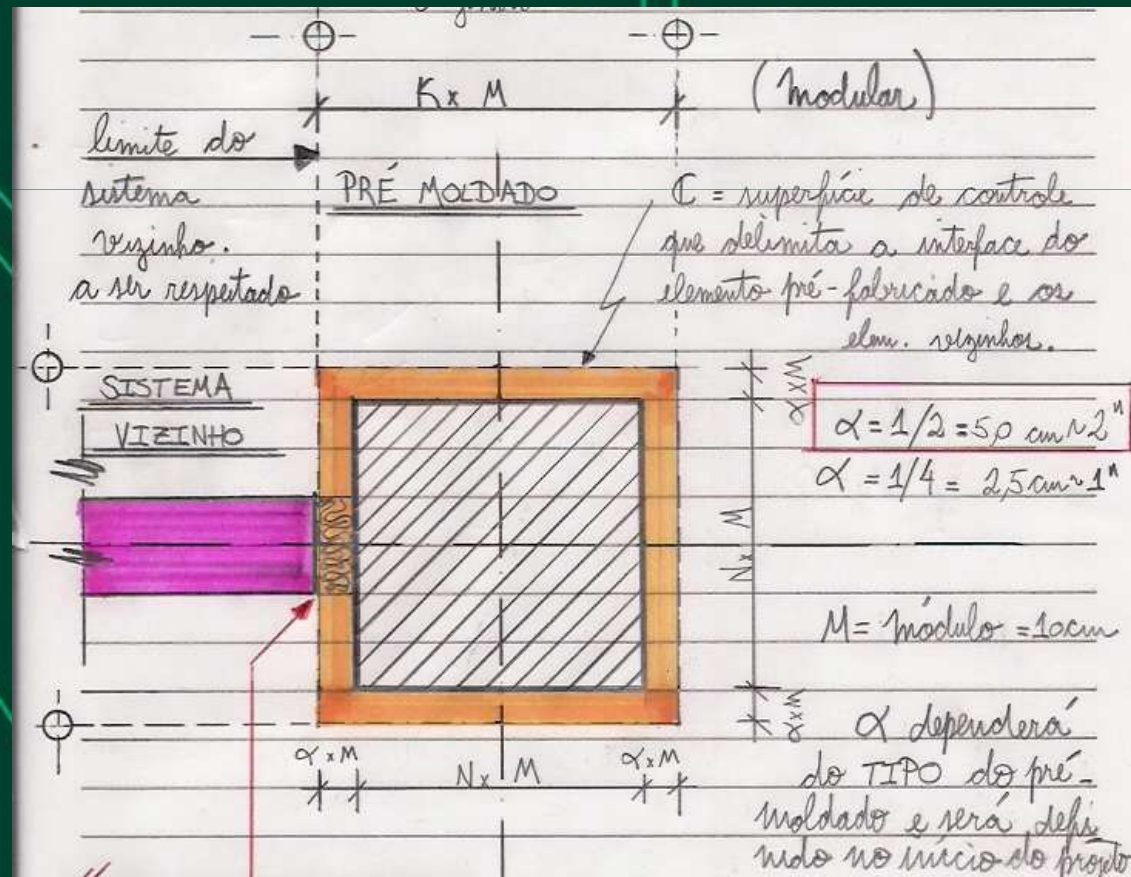 K x M
(Modular)
limite do
sistema
vizinho.
a ser respeitado
PRÉ MOLDADO
C = superfície de controle
que delimita a interface do
elemento pré-fabricado e os
elem. vizinhos.
SISTEMA
VIZINHO
α x M
α = 1/2 = 5,0 cm ~ 2"
α = 1/4 = 2,5 cm ~ 1"
N x M
M = módulo = 10cm
α x M
α x M
N x M
α x M
α dependerá
do TIPO do pré-
moldado e será defi
nido no início do projeto